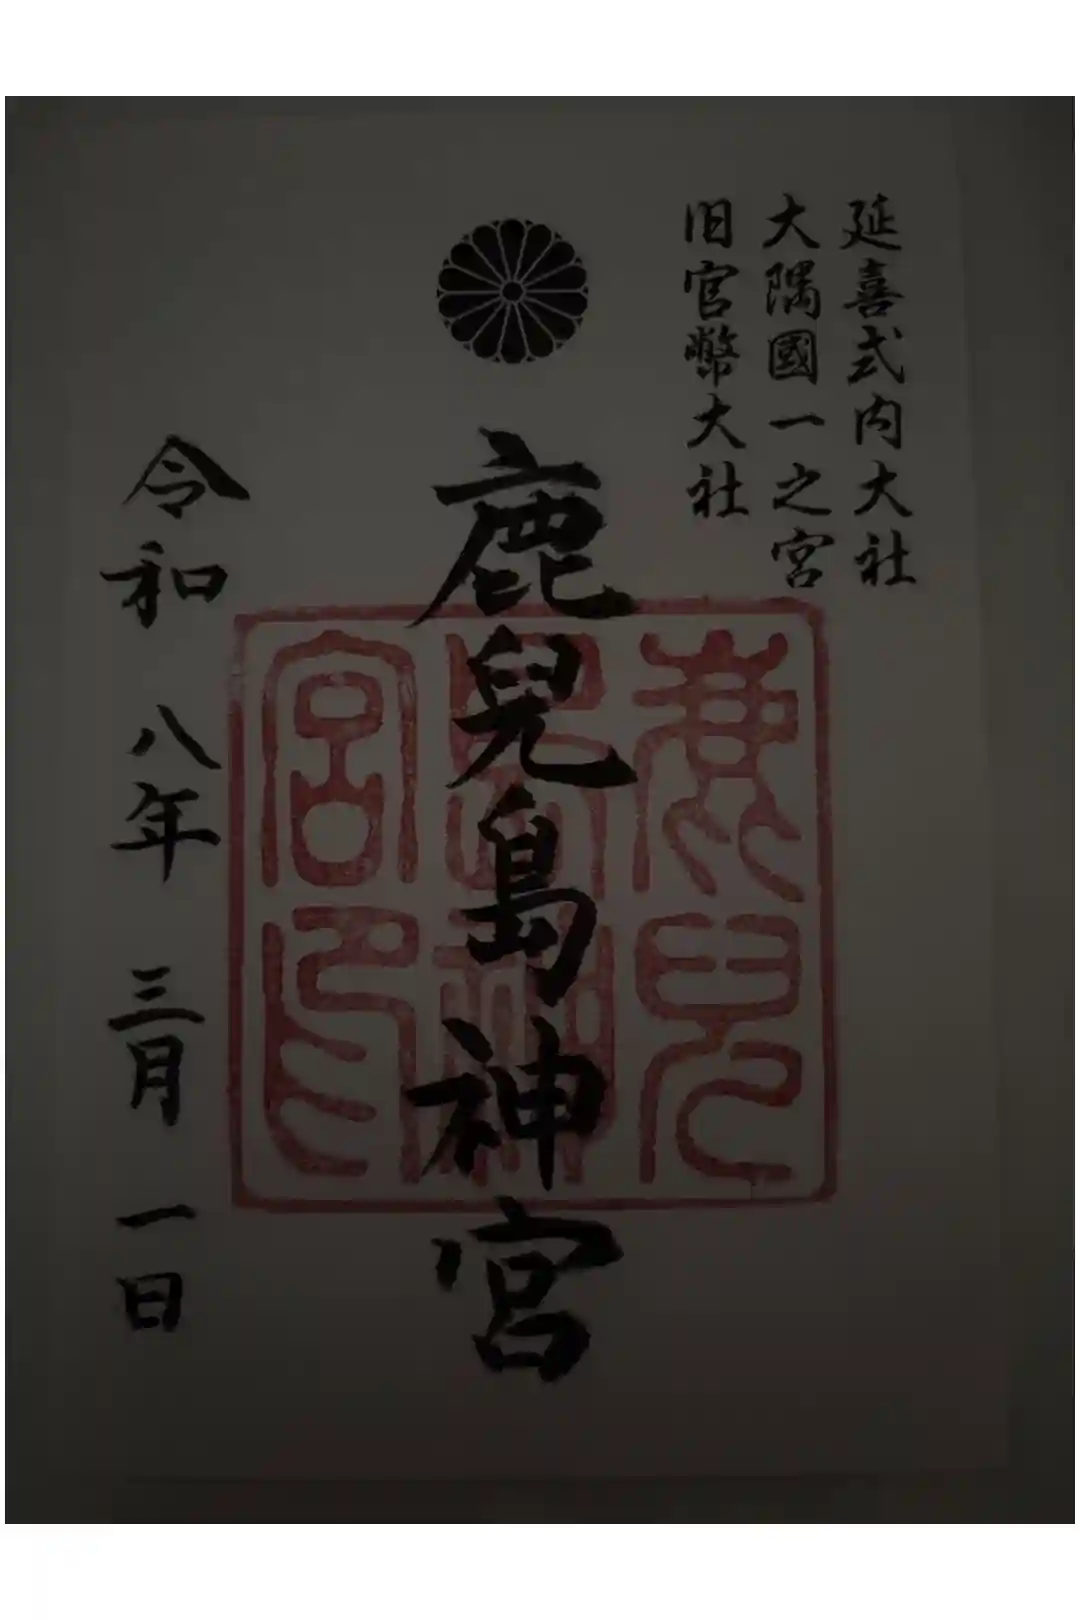 延喜式内大社
大隅國一之宮
旧官幣大社
鹿兒島神宮
鹿兒島神宮印
令和八年三月一日